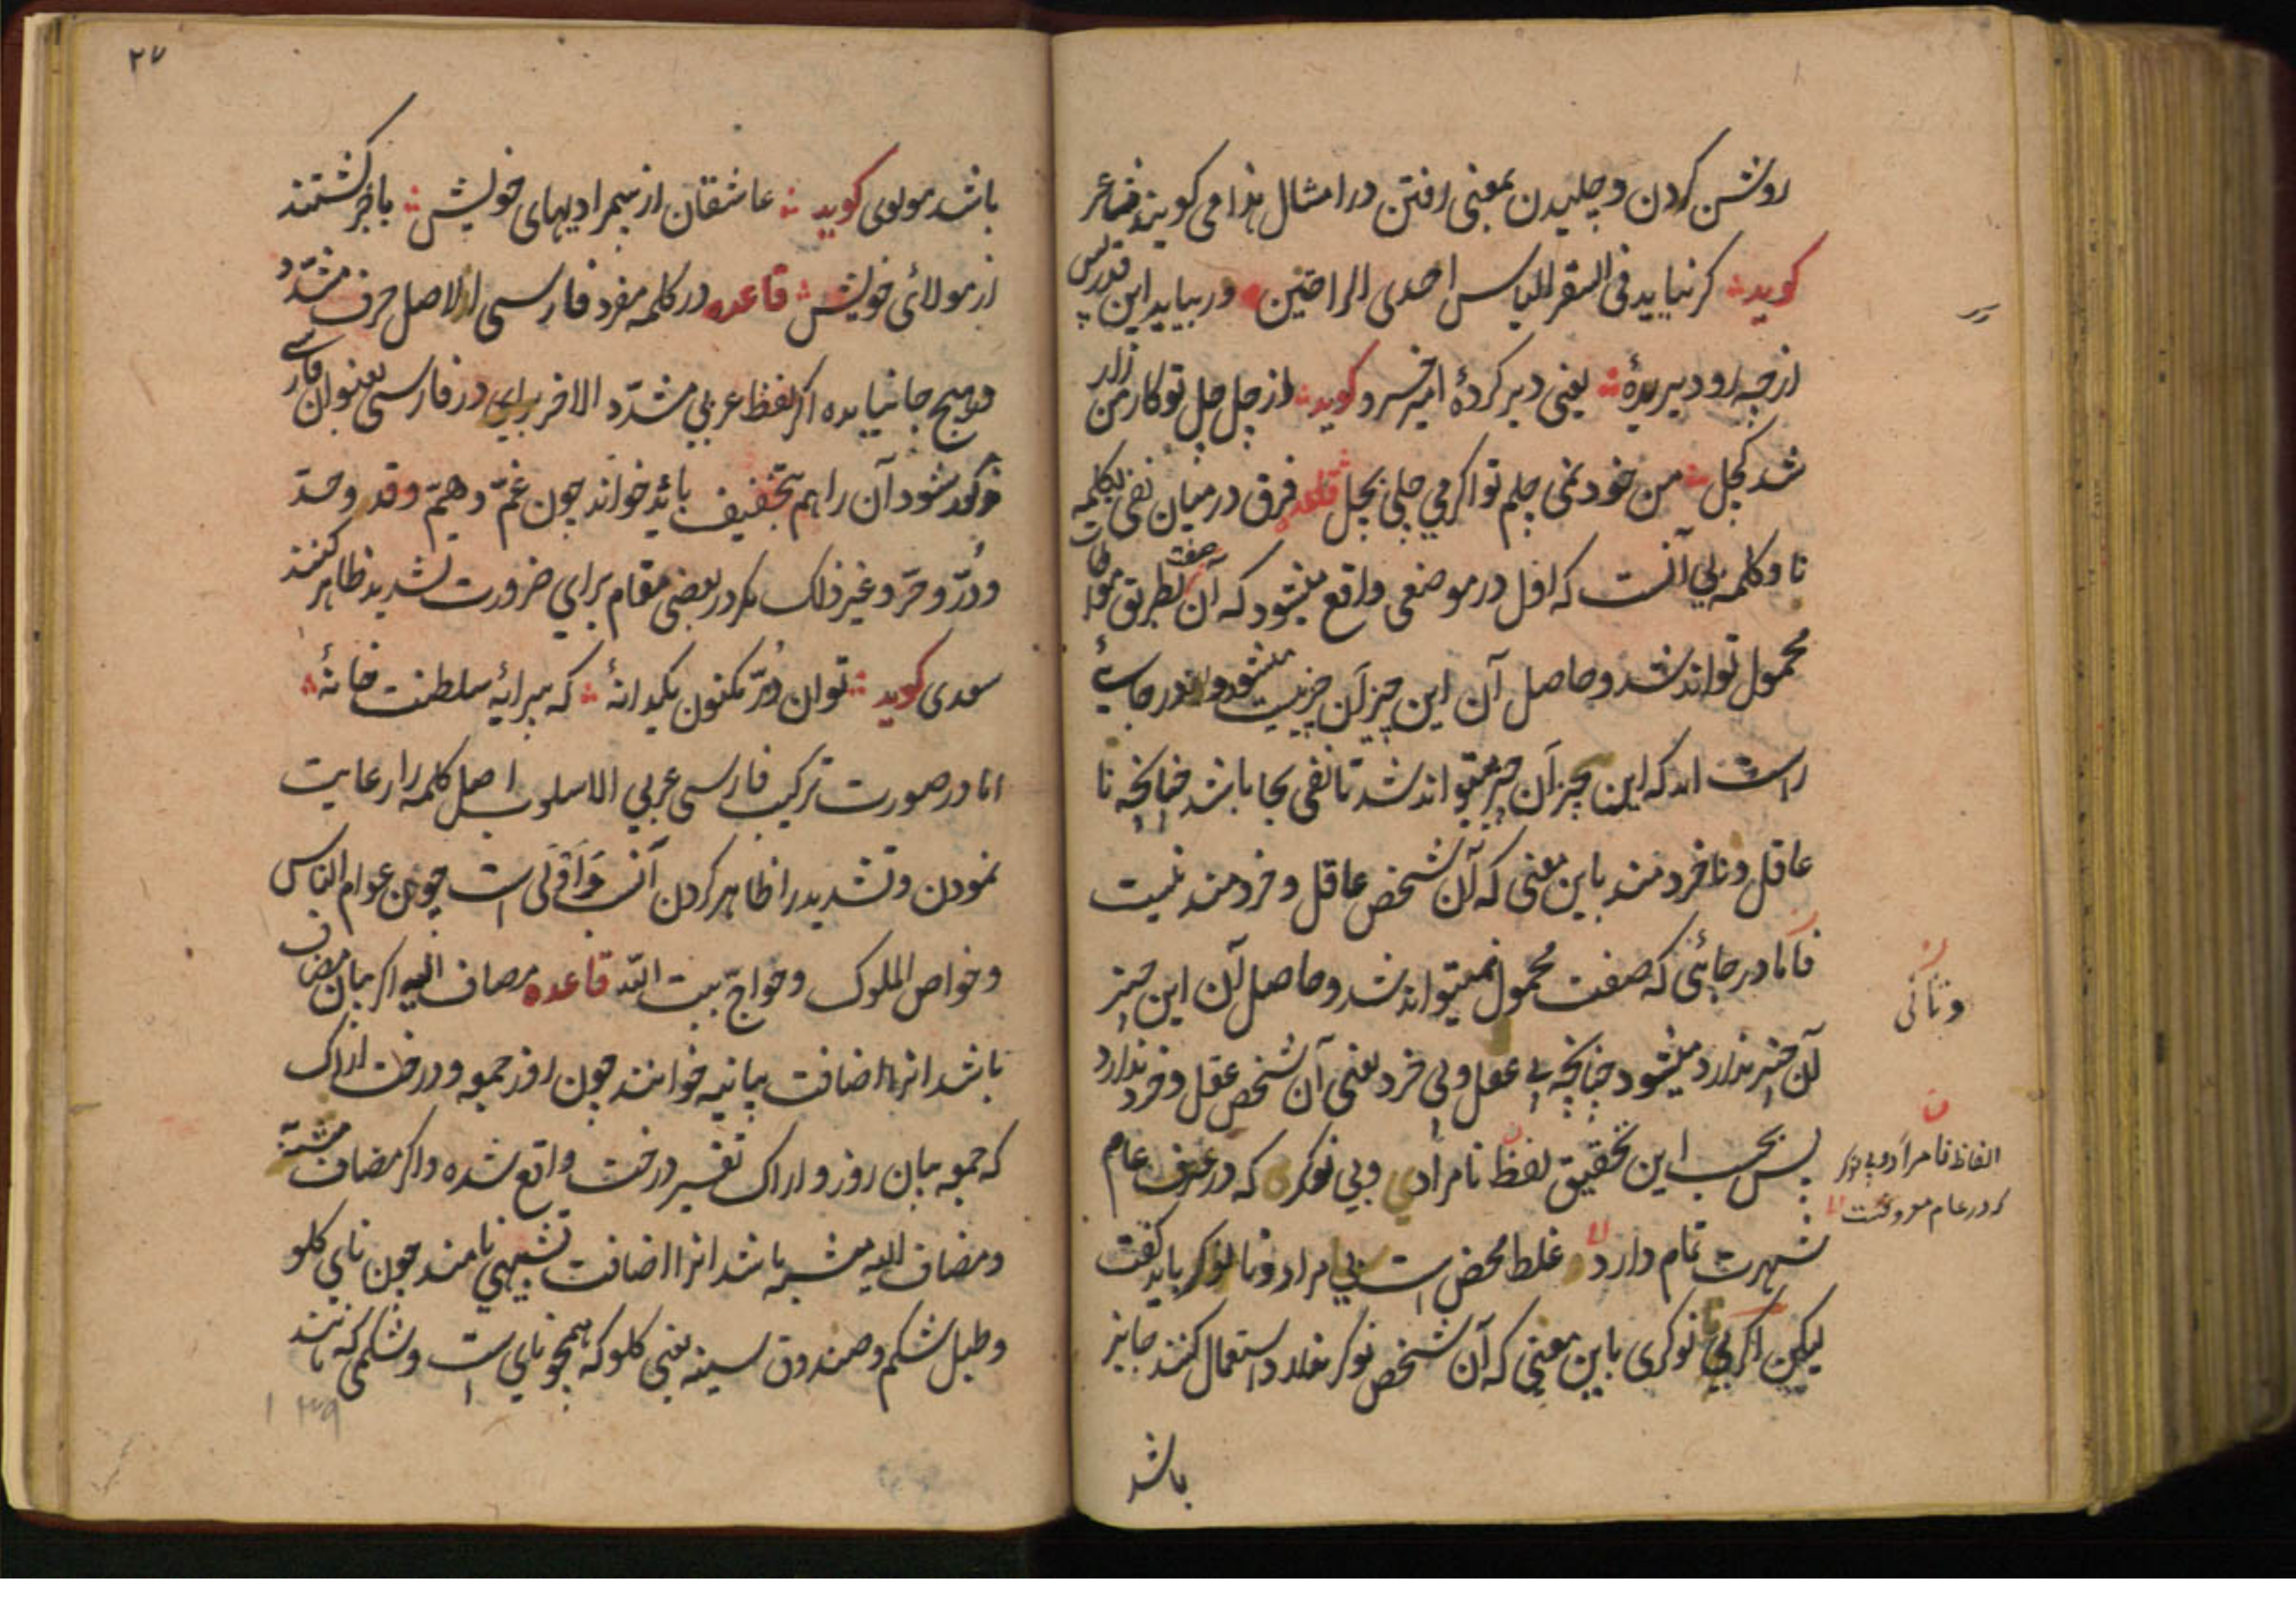 روشن کردن و چلیدن بمعنی رفتن در امثال هذا می کویند شاعر
کوید کر نیاید فی السقر للیاس احدی الراحتین ور بیاید این قدر بس
از چه رو دیر یدهٔ یعنی دیر کردهٔ امیر خسرو کوید از چل چل تو کار من زار
شد کچل من خود نمی چلم تو اکر می چلی بچل قاعده فرق در میان نفی بکلمه
نا و کلمه بی آنست که اول در موضعی واقع میشود که آن صفت بطریق مواطات
محمول تواند شد و حاصل آن این چیز آن چیز نیست میشود و در جایی
راست اید که این چیز آن چیز میتواند شد تا نفی بجا باشد چنانچه نا
عاقل و نا خردمند باین معنی که آن شخص عاقل و خردمند نیست
فاما در جائی که صفت محمول نمیتواند شد و حاصل آن این چیز
آن چیز ندارد میشود چنانچه بی عقل و بی خرد یعنی آن شخص عقل و خرد ندارد
پس بحسب این تحقیق لفظ نا مرادی و بی نوکری که در عرف عام
شهرت تمام دارد غلط محض است بی مراد و نا نوکر باید کفت
لیکن اکر بی نوکری باین معنی که آن شخص نوکر ندارد استعمال کنند جایز
باشد
و ثانی
الفاظ نا مراد و بی نوکر
که در عام معروفست
۲۷
باشد مولوی کوید عاشقان از بیمرادیهای خویش با خبر کشتند
از مولائی خویش قاعده در کلمه مفرد فارسی الاصل حرف مشدد
هیچ جا نیامده اکر لفظ عربی مشدّد الاخر برای در فارسی بعنوان فارسی
مذکور شود آن را هم بتخفیف باید خواند چون غمّ و همّ و قد و حد
و دُرّ و حرّ و غیر ذلک مکر در بعضی مقام برای ضرورت تشدید ظاهر کنند
سعدی کوید توان دُرّ مکنون یکدانهٔ که پیرایهٔ سلطنت خانهٔ
اما در صورت ترکیب فارسی عربی الاسلوب اصل کلمه را رعایت
نمودن و تشدید را ظاهر کردن اَنسَب وَ اَوْلی است چون عوام الناس
و خواص الملوک و حواجّ بیت الله قاعده مضاف الیه اکر بیان مضاف
باشد انرا اضافت بیانیه خوانند چون روز جمعه و درخت اراک
که جمعه بیان روز و اراک تفسیر درخت واقع شده و اکر مضاف مشبّه
و مضاف الیه مشبه باشد انرا اضافت تشبیهی نامند چون نای کلو
و طبل شکم و صندوق سینه یعنی کلو که همچو نای است و شکمی که مانند